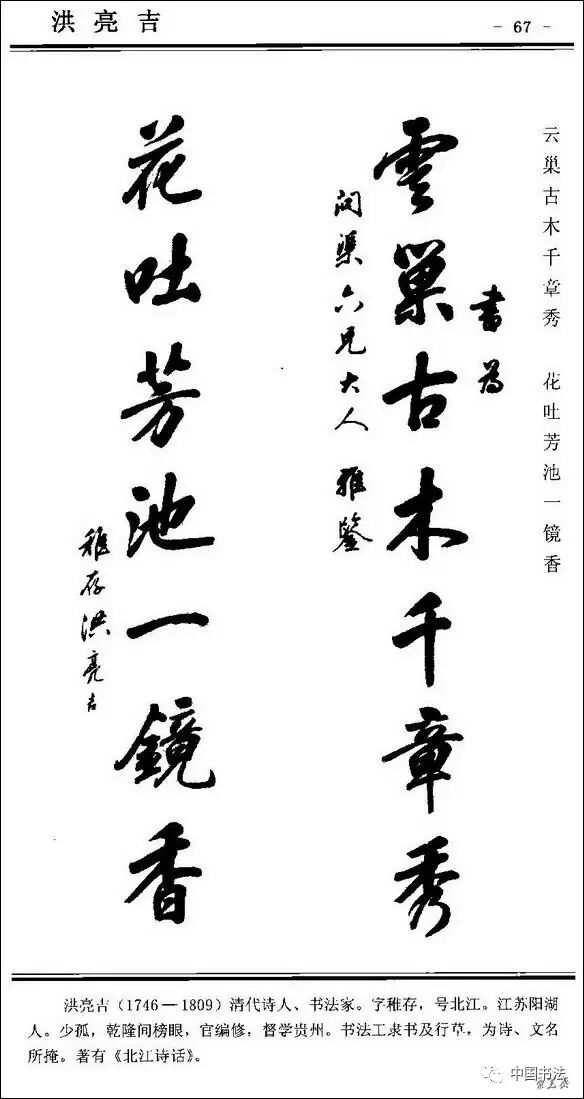 洪亮吉
- 67 -
云巢古木千章秀 花吐芳池一镜香
書為
雲巢古木千章秀
渠六兄大人 雅鑒
花吐芳池一鏡香
稚存洪亮吉
洪亮吉（1746—1809）清代诗人、书法家。字稚存，号北江。江苏阳湖
人。少孤，乾隆间榜眼，官编修，督学贵州。书法工隶书及行草，为诗、文名
所掩。著有《北江诗话》。
中国书法